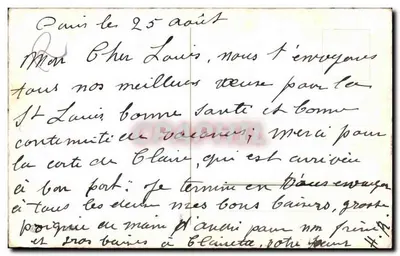 Paris les 25 août
Mon Cher Louis, nous t'envoyons
tous nos meilleurs veux pour la
St Louis bonne santé et bonne
continuité de vacances, merci pour
la carte de Claire, qui est arrivée
à bon port. Je termine en vous envoyer
à tous les deux mes bons baisers, grosse
poignée de main d'André pour mon
et gros baisers à Clairette, votre